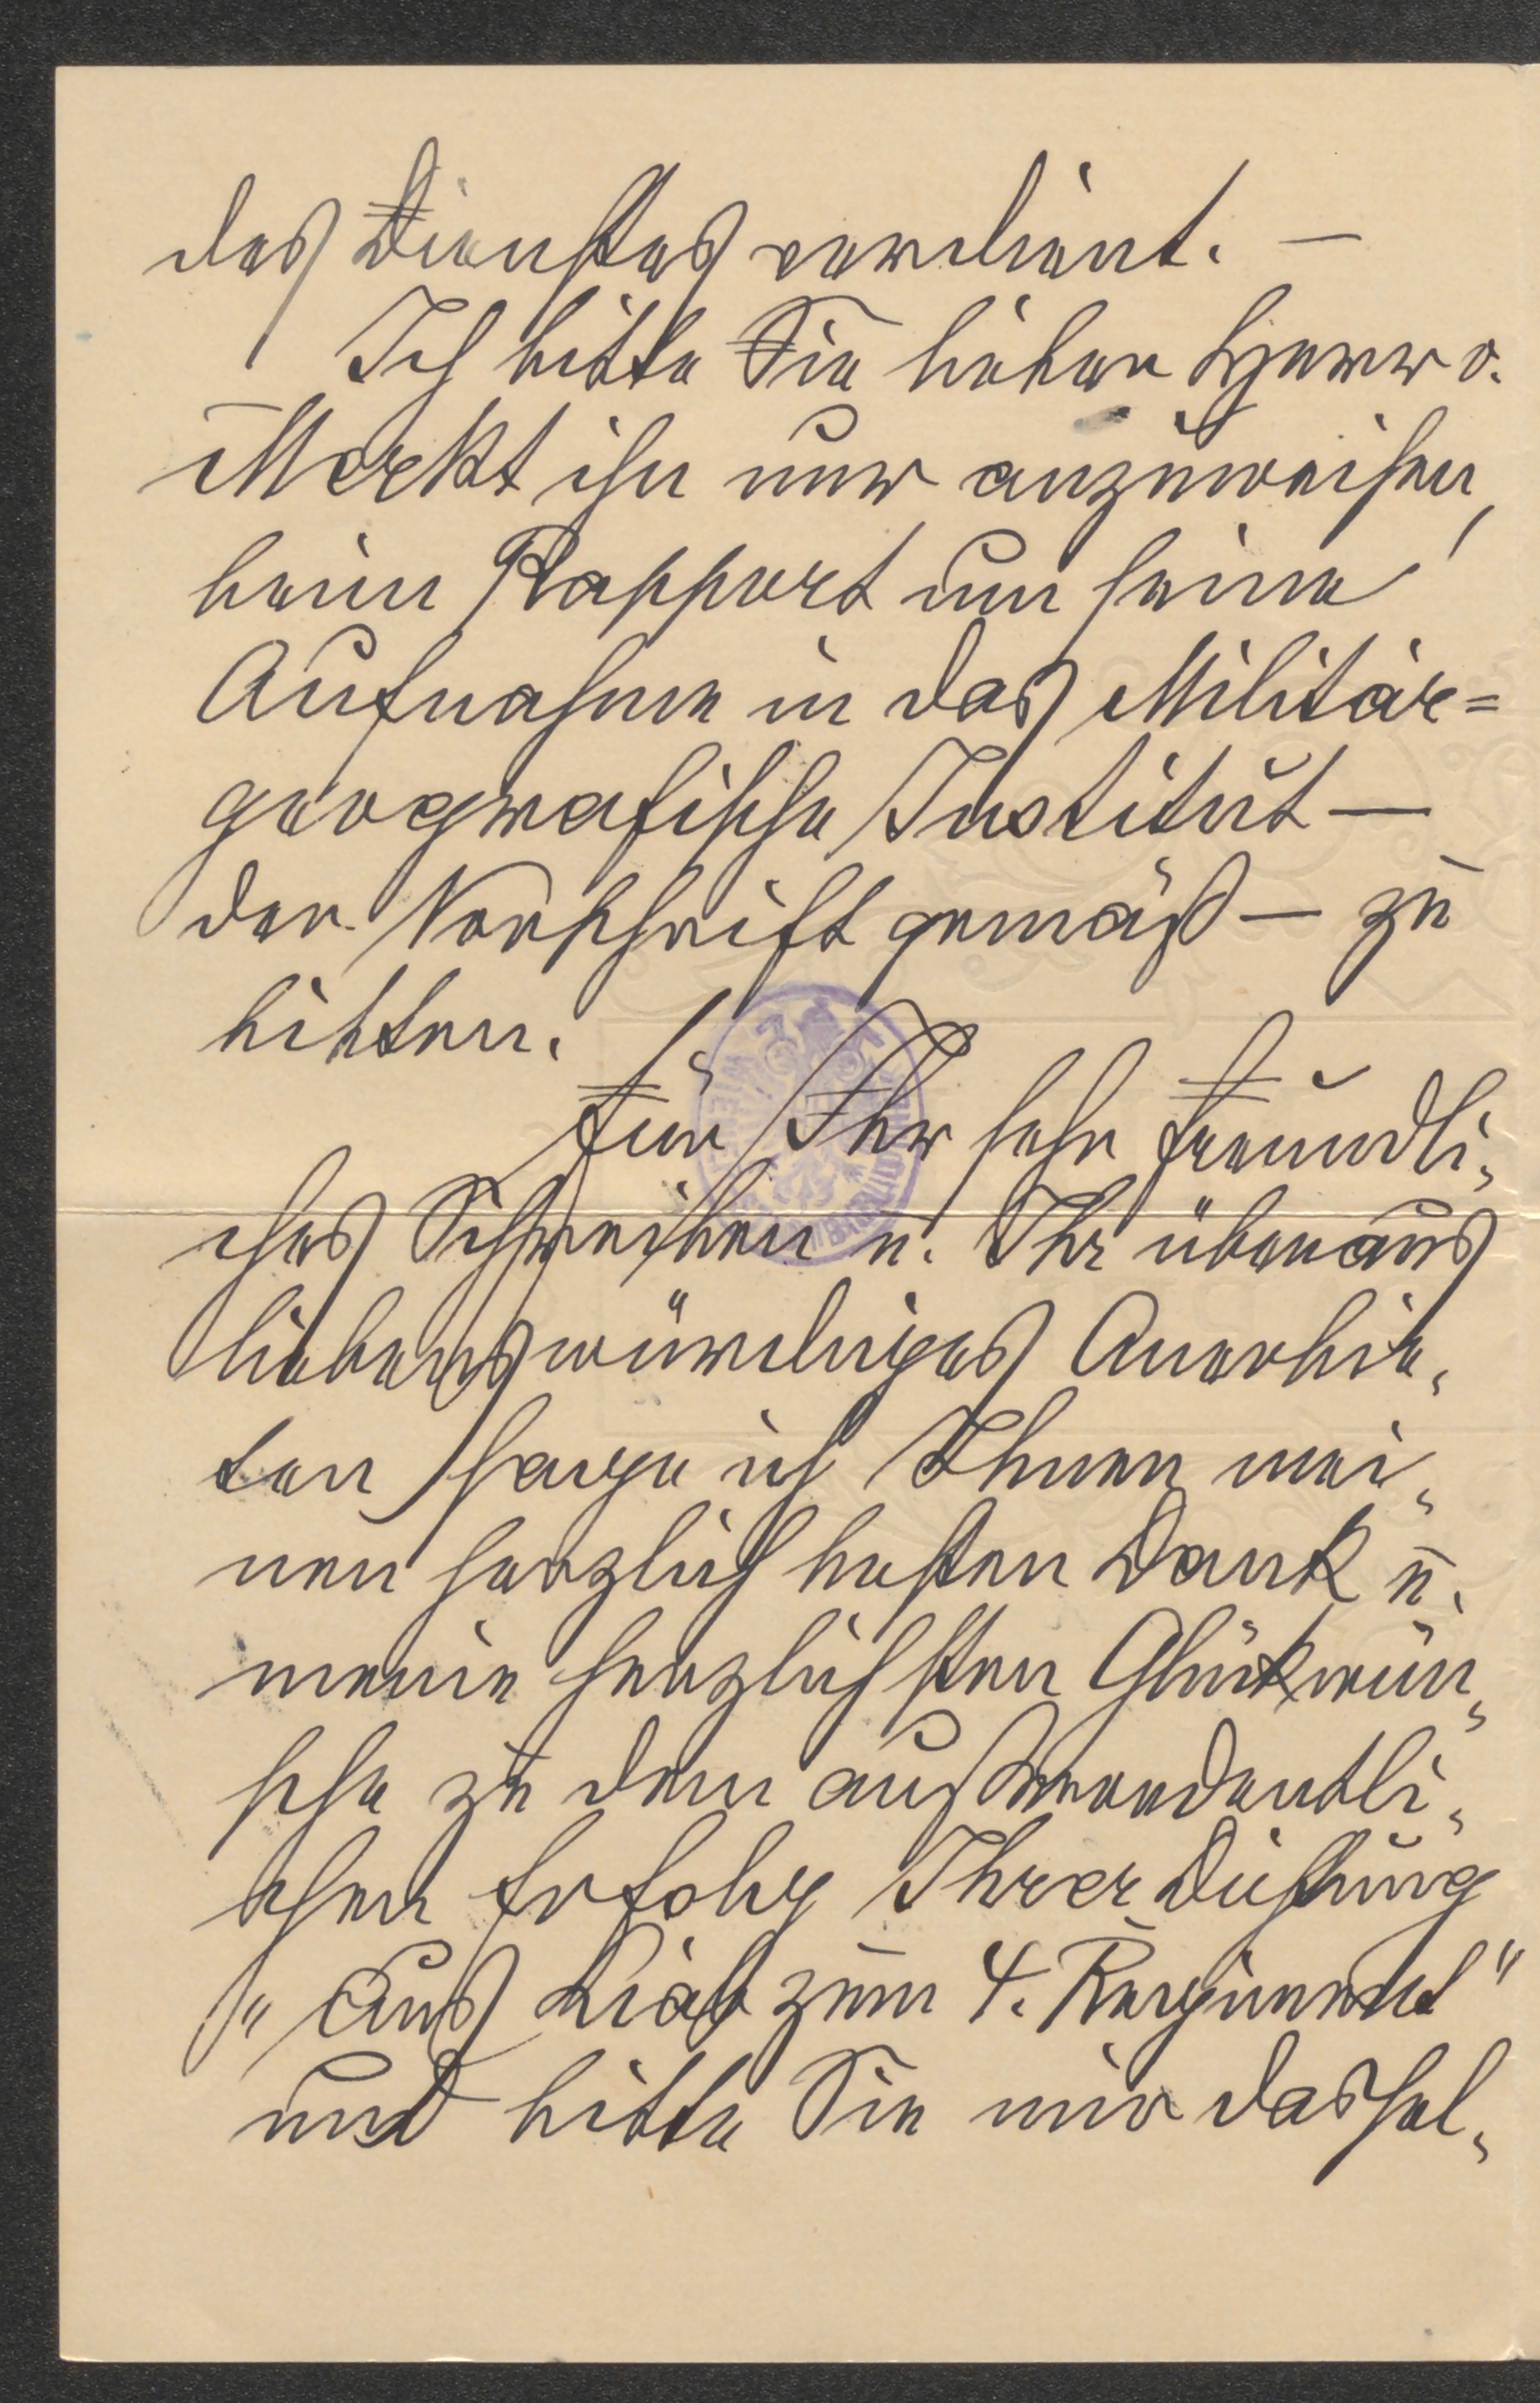 des Dienstes verdient. —
Ich bitte Sie lieber Herr v.
Merkt ihn nur anzuweisen,
beim Rapport um seine
Aufnahme in das Militär=
geografische Institut —
der Vorschrift gemäß — zu
bitten.
Für Ihr sehr freundli„
ches Schreiben u. Ihr überaus
liebenswürdiges Anerbie„
ten sage ich Ihnen mei„
nen herzlich besten Dank u.
meine herzlichsten Glückwün„
sche zu dem außerordentli„
chen Erfolg Ihrer Dichtung
"Aus Liab zum 4. Regiment"
und bitte Sie mir dassel„